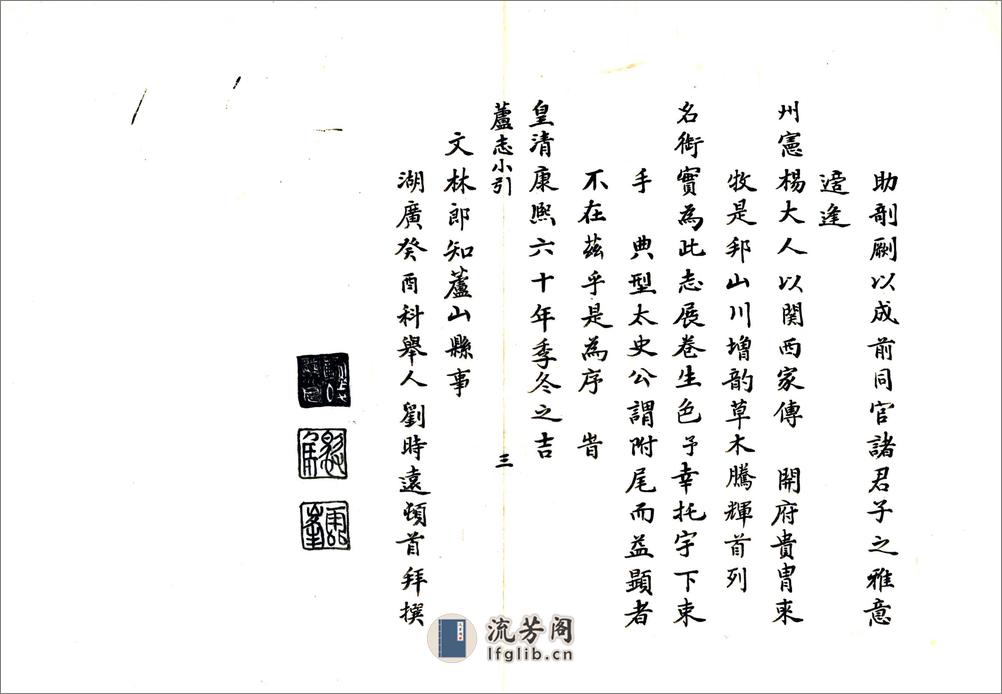 助剞劂以成前同官諸君子之雅意
適逢
州憲楊大人以関西家傳 開府貴冑來
牧是邦山川增韵草木騰輝首列
名銜實為此志展卷生色予幸托宇下束
手 典型太史公謂附尾而益顯者
不在茲乎是為序 旹
皇清康熙六十年季冬之吉
蘆志小引 三
文林郎知蘆山縣事
湖廣癸酉科舉人劉時遠頓首拜撰
流芳阁
lfglib.cn